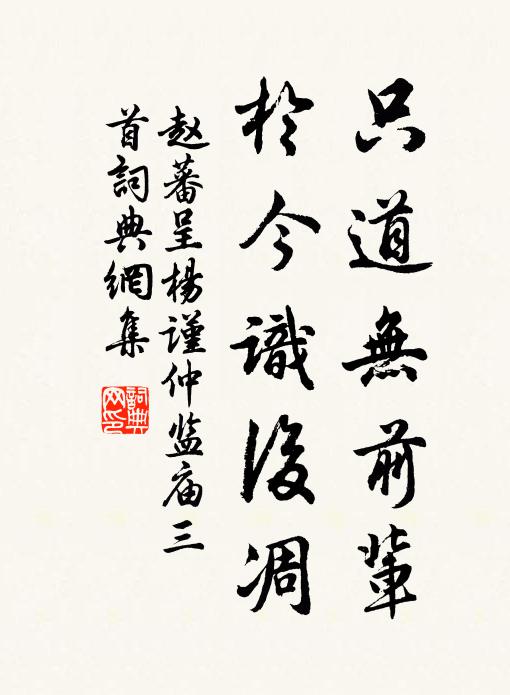 只道無前輩
於今識後凋
赵蕃呈楊謹仲监庙三
首詞典網集
詞典
网印